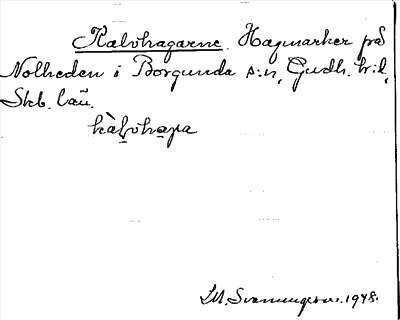 Kalvhagarne. Hagmarker på
Nolheden i Borgunda s:n, Gudh. h:d,
Skb. län.
kàlvhaga
I.M. Svenungsson. 1948.